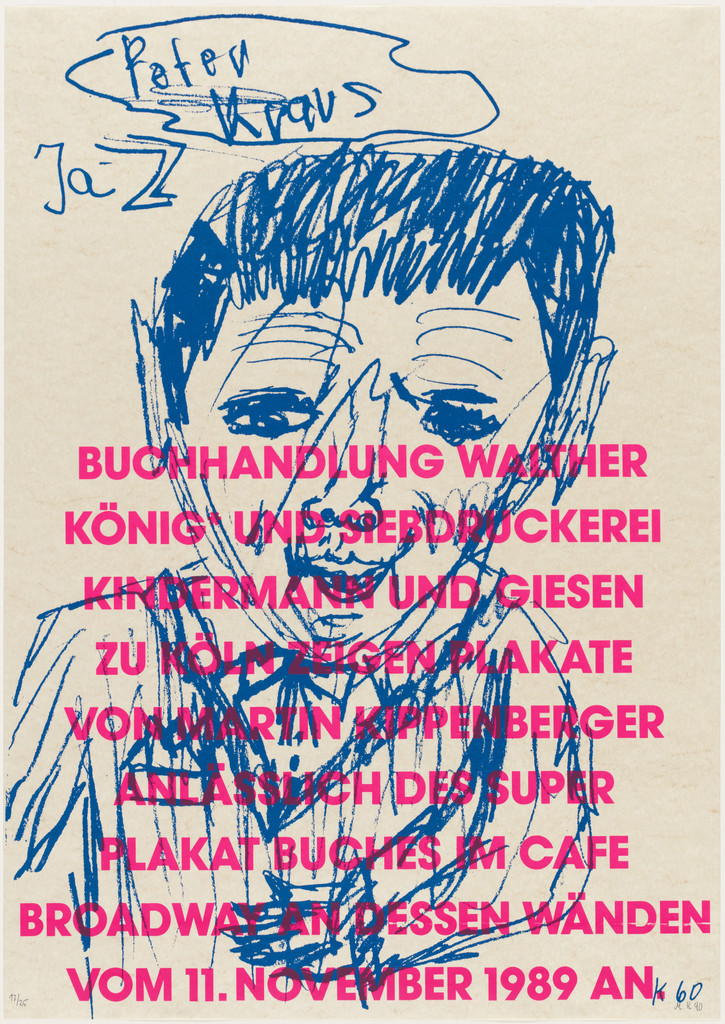 Peter
Kraus
Ja-Z
BUCHHANDLUNG WALTHER
KÖNIG* UND SIEBDRUCKEREI
KINDERMANN UND GIESEN
ZU KÖLN ZEIGEN PLAKATE
VON MARTIN KIPPENBERGER
ANLÄSSLICH DES SUPER
PLAKAT BUCHES IM CAFE
BROADWAY AN DESSEN WÄNDEN
VOM 11. NOVEMBER 1989 AN.
K 60
17/25
M.K. 90